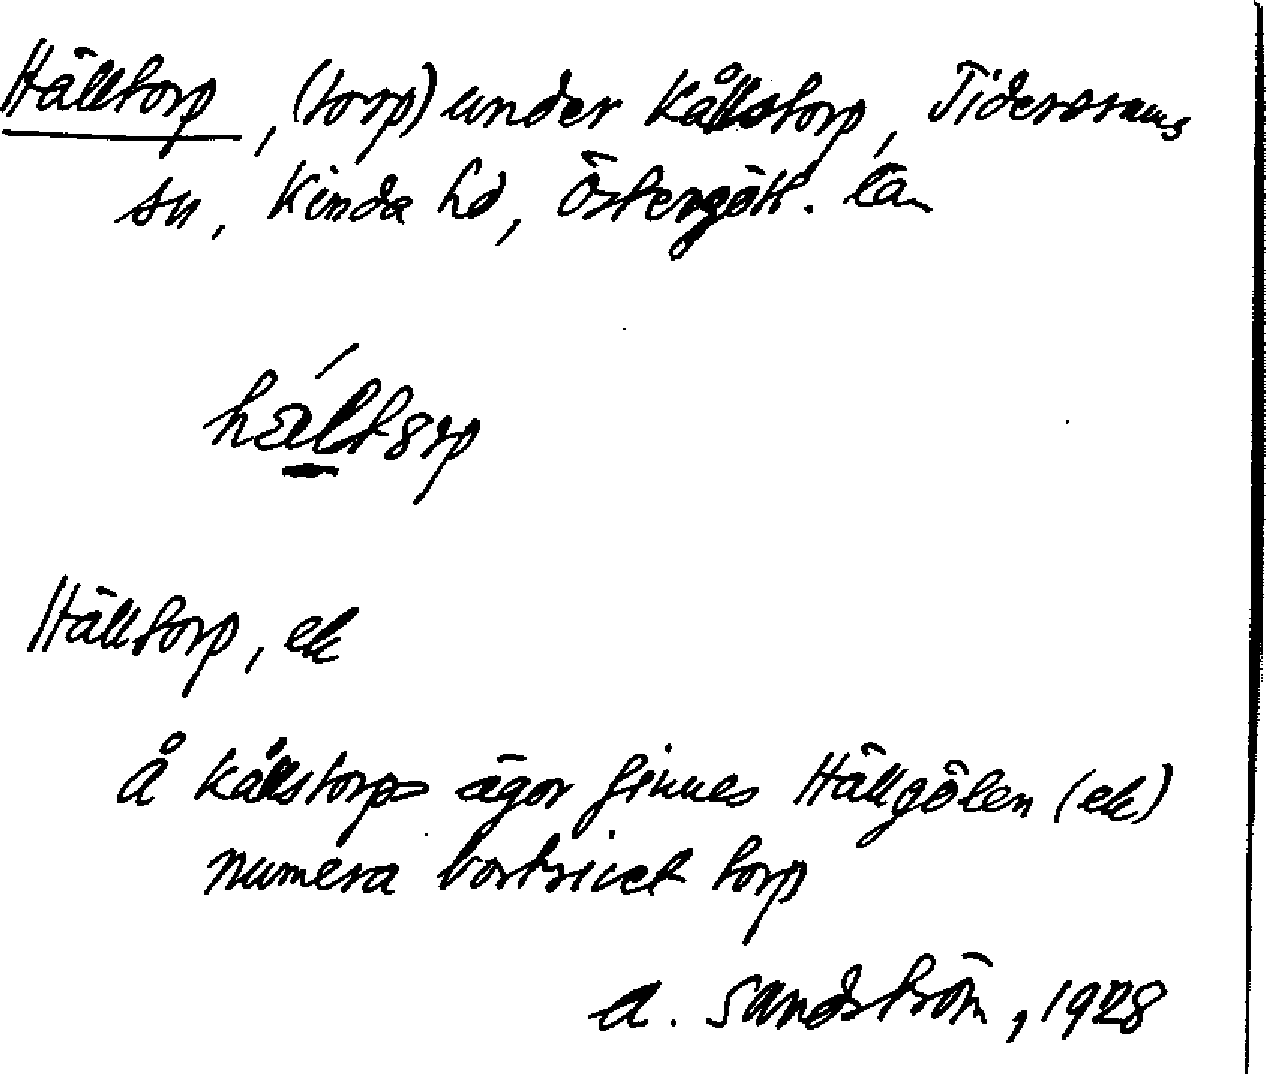 Hälltorp, (torp) under Kållstorp, Tidersrums
sn, Kinda hd, Östergötl. län
hæltorp
Hälltorp, ek
Å Kållstorps ägor finnes Hällgölen (ek)
numera bortrivet torp
A. Sandström, 1928